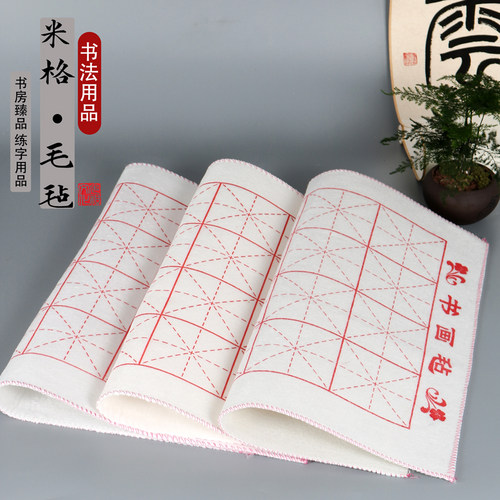 米格·毛毡
书法用品
书房臻品 练字用品
书画毡